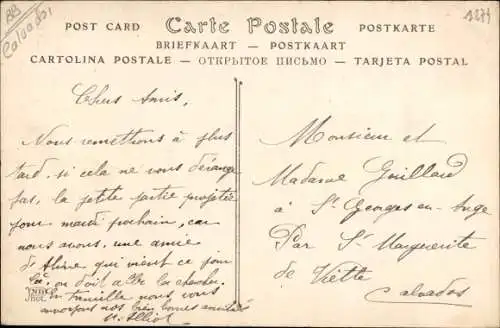 BB
Calvados
POST CARD
Carte Postale
POSTKARTE
BRIEFKAART — POSTKAART
CARTOLINA POSTALE — ОТКРЫТОЕ ПИСЬМО — TARJETA POSTAL
Chers Amis,
Nous remettrons à plus
tard, si cela ne vous dérange
pas, la petite partie projetée
pour mardi prochain, car
nous avons, une amie
d'Aline qui vient ce jour
on doit a la chercher
En famille nous vous
envoyons nos bien bonnes amitiés
Monsieur et
Madame Guillard
à St Georges en-Auge
Par St Marguerite
de Viette
Calvados